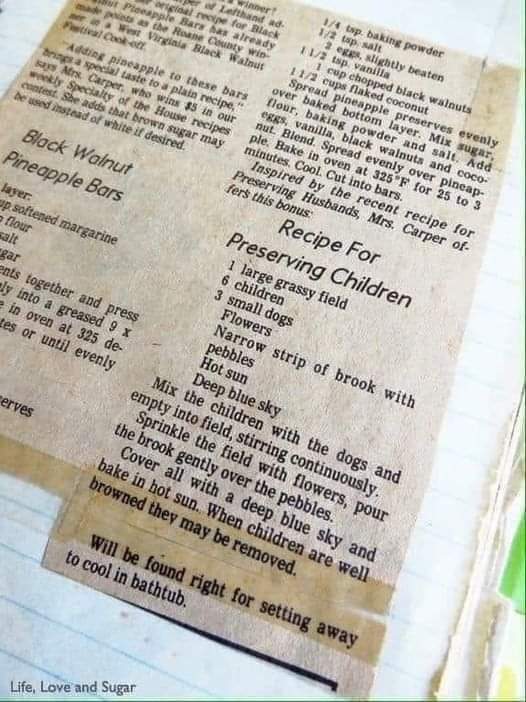 winner!
per of Lefthand ad-
original recipe for Black
nut Pineapple Bars has already
made points as the Roane County win-
ner in a West Virginia Black Walnut
Festival Cook-off.
Adding pineapple to these bars
brings a special taste to a plain recipe,"
says Mrs. Carper, who wins $5 in our
weekly Specialty of the House recipes
contest. She adds that brown sugar may
be used instead of white if desired.
Black Walnut
Pineapple Bars
layer:
up softened margarine
flour
salt
gar
ents together and press
ly into a greased 9 x
in oven at 325 de-
tes or until evenly
erves
1/4 tsp. baking powder
1/2 tsp. salt
2 eggs, slightly beaten
1 1/2 tsp. vanilla
1 cup chopped black walnuts
1 1/2 cups flaked coconut
Spread pineapple preserves evenly
over baked bottom layer. Mix sugar,
flour, baking powder and salt. Add
eggs, vanilla, black walnuts and coco-
nut. Blend. Spread evenly over pineap-
ple. Bake in oven at 325°F for 25 to 3
minutes. Cool. Cut into bars.
Inspired by the recent recipe for
Preserving Husbands, Mrs. Carper of-
fers this bonus:
Recipe For
Preserving Children
1 large grassy field
6 children
3 small dogs
Flowers
Narrow strip of brook with
pebbles
Hot sun
Deep blue sky
Mix the children with the dogs and
empty into field, stirring continuously.
Sprinkle the field with flowers, pour
the brook gently over the pebbles.
Cover all with a deep blue sky and
bake in hot sun. When children are well
browned they may be removed.
Will be found right for setting away
to cool in bathtub.
Life, Love and Sugar